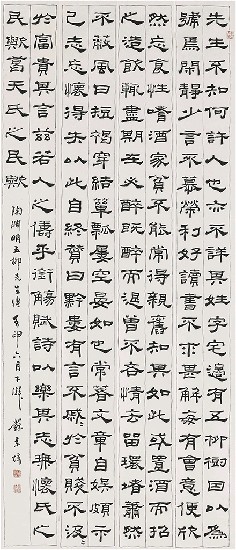 先生不知何許人也亦不詳其姓字宅邊有五柳樹因以為
號焉閑靜少言不慕榮利好讀書不求甚解每有會意便欣
然忘食性嗜酒家貧不能常得親舊知其如此或置酒而招
之造飲輒盡期在必醉既醉而退曾不吝情去留環堵蕭然
不蔽風日短褐穿結簞瓢屢空晏如也常著文章自娛頗示
己志忘懷得失以此自終贊曰黔婁有言不戚〻於貧賤不汲〻
於富貴其言茲若人之儔乎銜觴賦詩以樂其志無懷氏之
民歟葛天氏之民歟
陶淵明五柳先生傳 卯六月下澣